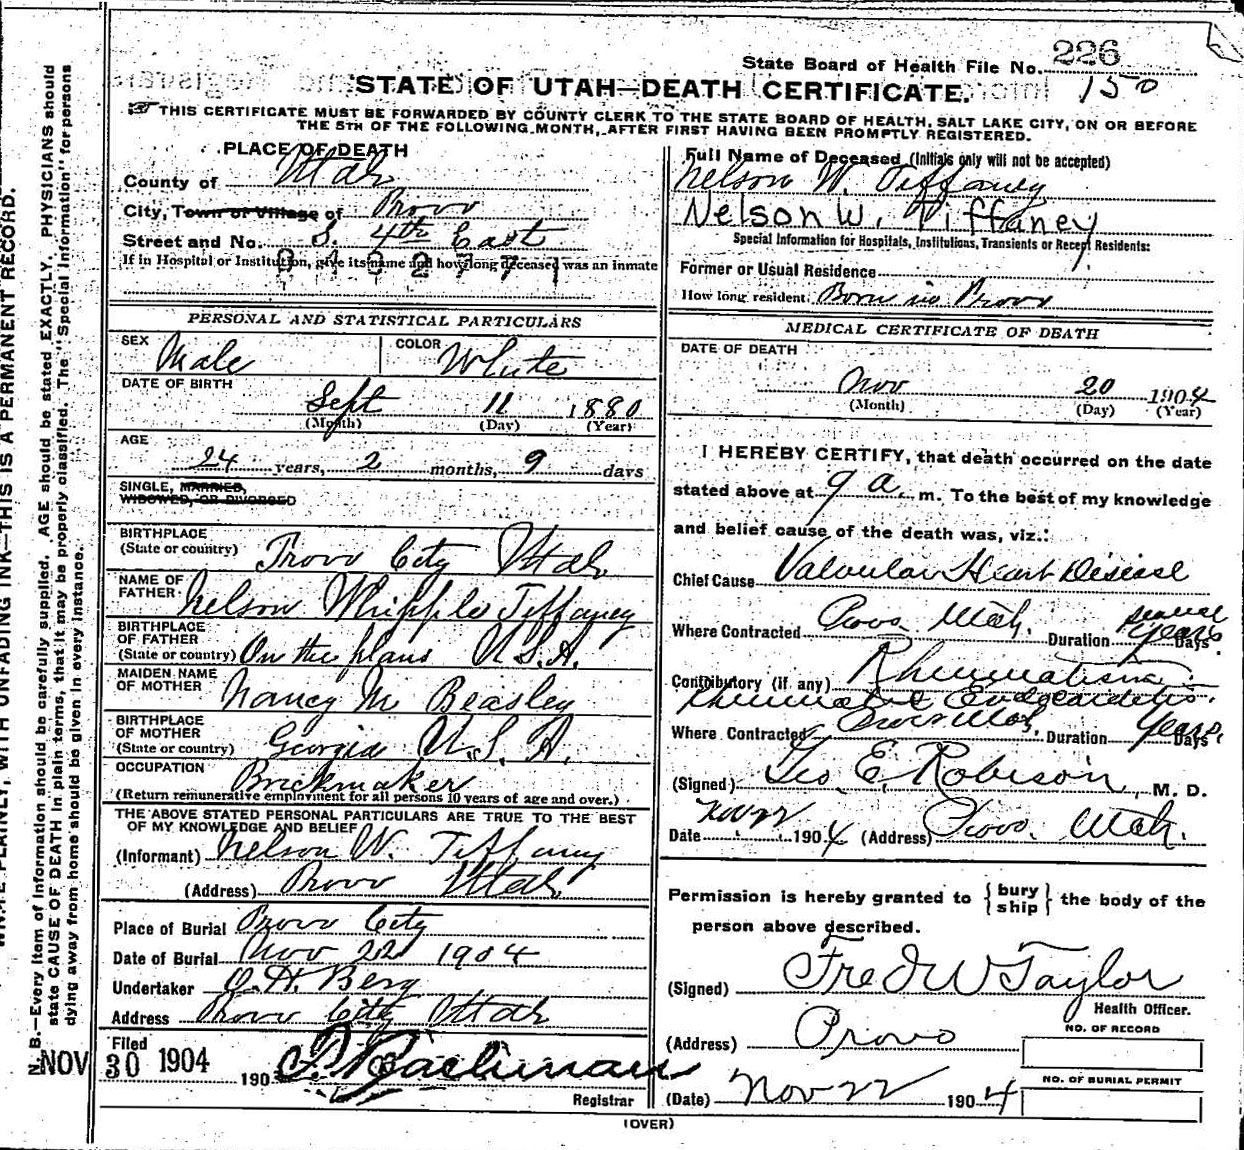 State Board of Health File No. 226
150
STATE OF UTAH—DEATH CERTIFICATE.
THIS CERTIFICATE MUST BE FORWARDED BY COUNTY CLERK TO THE STATE BOARD OF HEALTH, SALT LAKE CITY, ON OR BEFORE
THE 5TH OF THE FOLLOWING MONTH, AFTER FIRST HAVING BEEN PROMPTLY REGISTERED.
PLACE OF DEATH
County of Utah
City, Town or Village of Provo
Street and No. S. 4th East
If in Hospital or Institution, give its name and how long deceased was an inmate
PERSONAL AND STATISTICAL PARTICULARS
SEX Male COLOR White
DATE OF BIRTH
Sept 11 1880
(Month) (Day) (Year)
AGE
24 years, 2 months, 9 days
SINGLE, MARRIED,
WIDOWED, OR DIVORCED
BIRTHPLACE
(State or country) Provo City Utah
NAME OF
FATHER Nelson Whipple Tiffaney
BIRTHPLACE
OF FATHER
(State or country) On the plans U.S.A.
MAIDEN NAME
OF MOTHER Nancy M Beasley
BIRTHPLACE
OF MOTHER
(State or country) Georgia U.S.A.
OCCUPATION Brickmaker
(Return remunerative employment for all persons 10 years of age and over.)
THE ABOVE STATED PERSONAL PARTICULARS ARE TRUE TO THE BEST
OF MY KNOWLEDGE AND BELIEF
(Informant) Nelson W. Tiffany
(Address) Provo Utah
Place of Burial Provo City
Date of Burial Nov 22 1904
Undertaker O. H. Berg
Address Provo City Utah
Filed
NOV 30 1904 190
Registrar
Full Name of Deceased (Initials only will not be accepted)
Nelson W. Tiffaney
Nelson W. Tiffaney
Special Information for Hospitals, Institutions, Transients or Recent Residents:
Former or Usual Residence
How long resident. Born in Provo
MEDICAL CERTIFICATE OF DEATH
DATE OF DEATH
Nov 20 1904
(Month) (Day) (Year)
I HEREBY CERTIFY, that death occurred on the date
stated above at 9 a. m. To the best of my knowledge
and belief cause of the death was, viz.:
Chief Cause Valvular Heart Disease
Where Contracted Provo Utah. Duration several years Days.
Contributory (if any) Rheumatism
Rheumatic Endocarditis.
Where Contracted Provo Utah. Duration Years Days
(Signed) Geo. E. Robison, M. D.
Date Nov 22 1904 (Address) Provo, Utah.
Permission is hereby granted to { bury ship } the body of the
person above described.
(Signed) Fred W Taylor
Health Officer.
(Address) Provo
NO. OF RECORD
NO. OF BURIAL PERMIT
(Date) Nov 22 1904
(OVER)
N. B.—Every item of information should be carefully supplied. AGE should be stated EXACTLY. PHYSICIANS should
state CAUSE OF DEATH in plain terms, that it may be properly classified. The "Special Information" for persons
dying away from home should be given in every instance.
PLAINLY, WITH UNFADING INK—THIS IS A PERMANENT RECORD.